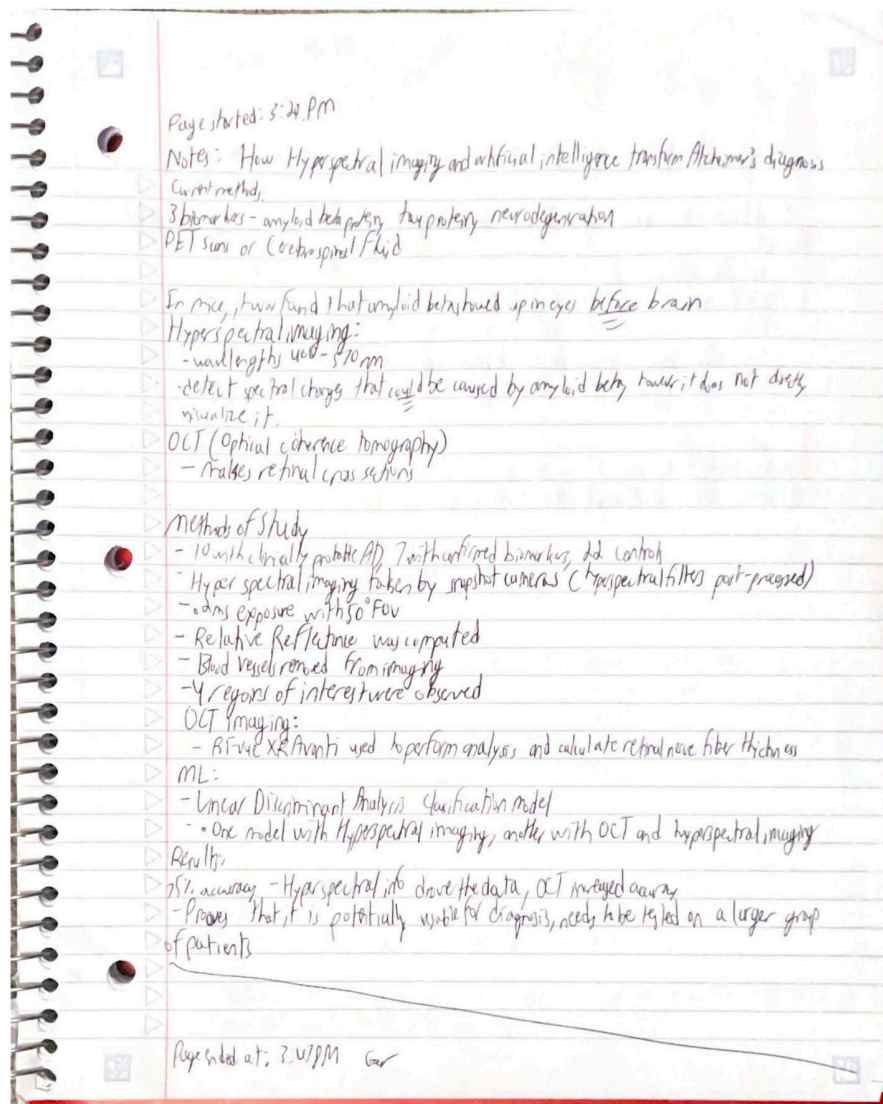 Page started: 3:24 PM
Notes: How Hyperspectral imaging and artificial intelligence transform Alzheimer's diagnosis
Current methods:
3 biomarkers - amyloid beta protein, tau protein, neurodegeneration
PET scans or Cerebrospinal Fluid
In mice, it was found that amyloid beta showed up in eyes before brain
Hyperspectral imaging:
- wavelengths 460-570 nm
- detect spectral changes that could be caused by amyloid beta, however it does not directly
visualize it.
OCT (Optical coherence tomography)
- makes retinal cross sections
Methods of Study
- 10 with clinically probable AD, 7 with confirmed biomarkers, 22 controls
- Hyperspectral imaging taken by snapshot cameras (hyperspectral filters post-processed)
- exposure with 50° FOV
- Relative Reflectance was computed
- Blood vessels removed from imaging
- 4 regions of interest were observed
OCT imaging:
- RT-vue XR Avanti used to perform analysis and calculate retinal nerve fiber thickness
ML:
- Linear Discriminant Analysis classification model
- One model with Hyperspectral imaging, another with OCT and hyperspectral imaging
Results:
accuracy - Hyperspectral info drove the data, OCT increased accuracy
- Proves that it is potentially usable for diagnosis, needs to be tested on a larger group
of patients
Page ended at: 3:47PM